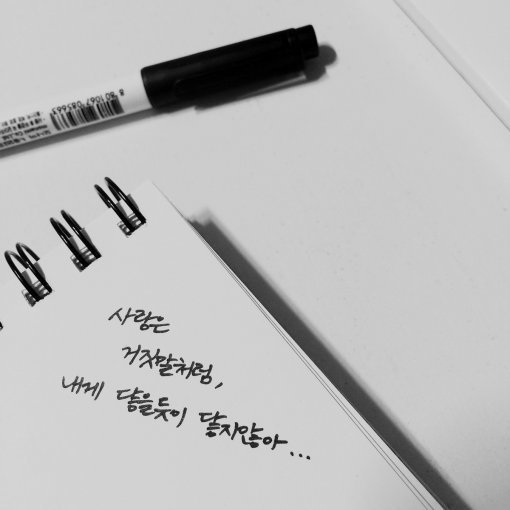 8 801067 085663
사랑은
거짓말처럼,
내게 닿을듯이 닿지않아...